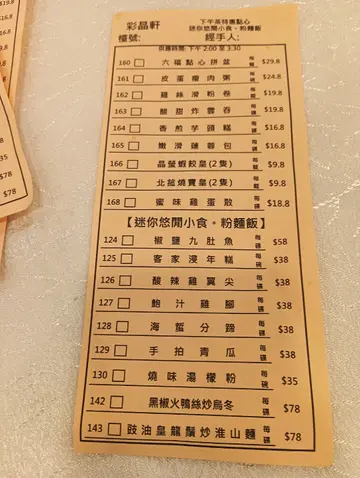 彩晶軒
下午茶特惠點心
迷你悠閒小食。粉麵飯
檯號: 經手人:
供應時間: 下午 2:00 至 3:30
160 六福點心拼盆 每籠 $29.8
161 皮蛋瘦肉粥 每碗 $24.8
162 雞絲滑粉卷 每碟 $19.8
163 醋甜炸雲吞 每碟 $19.8
164 香煎芋頭糕 每碟 $16.8
165 嫩滑蓮蓉包 每籠 $16.8
166 晶瑩蝦餃皇(2隻) 每籠 $9.8
167 北菇燒賣皇(2隻) 每籠 $9.8
168 蜜味雞蛋散 每碟 $18.8
【迷你悠閒小食。粉麵飯】
124 椒鹽九肚魚 每碟 $58
125 客家浸年糕 每碗 $38
126 酸辣雞翼尖 每碟 $38
127 鮑汁雞腳 每碟 $38
128 海蜇分蹄 每碟 $38
129 手拍青瓜 每碟 $38
130 燒味湯檬粉 每碗 $35
142 黑椒火鴨絲炒烏冬 每碟 $78
143 豉油皇龍鬚炒淮山麵 每碟 $78
$19.8
$9.8
$78
$35
$78